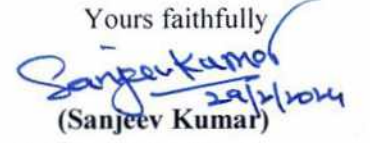 Yours faithfully
Sanjeev Kumar
29/2/2024
(Sanjeev Kumar)